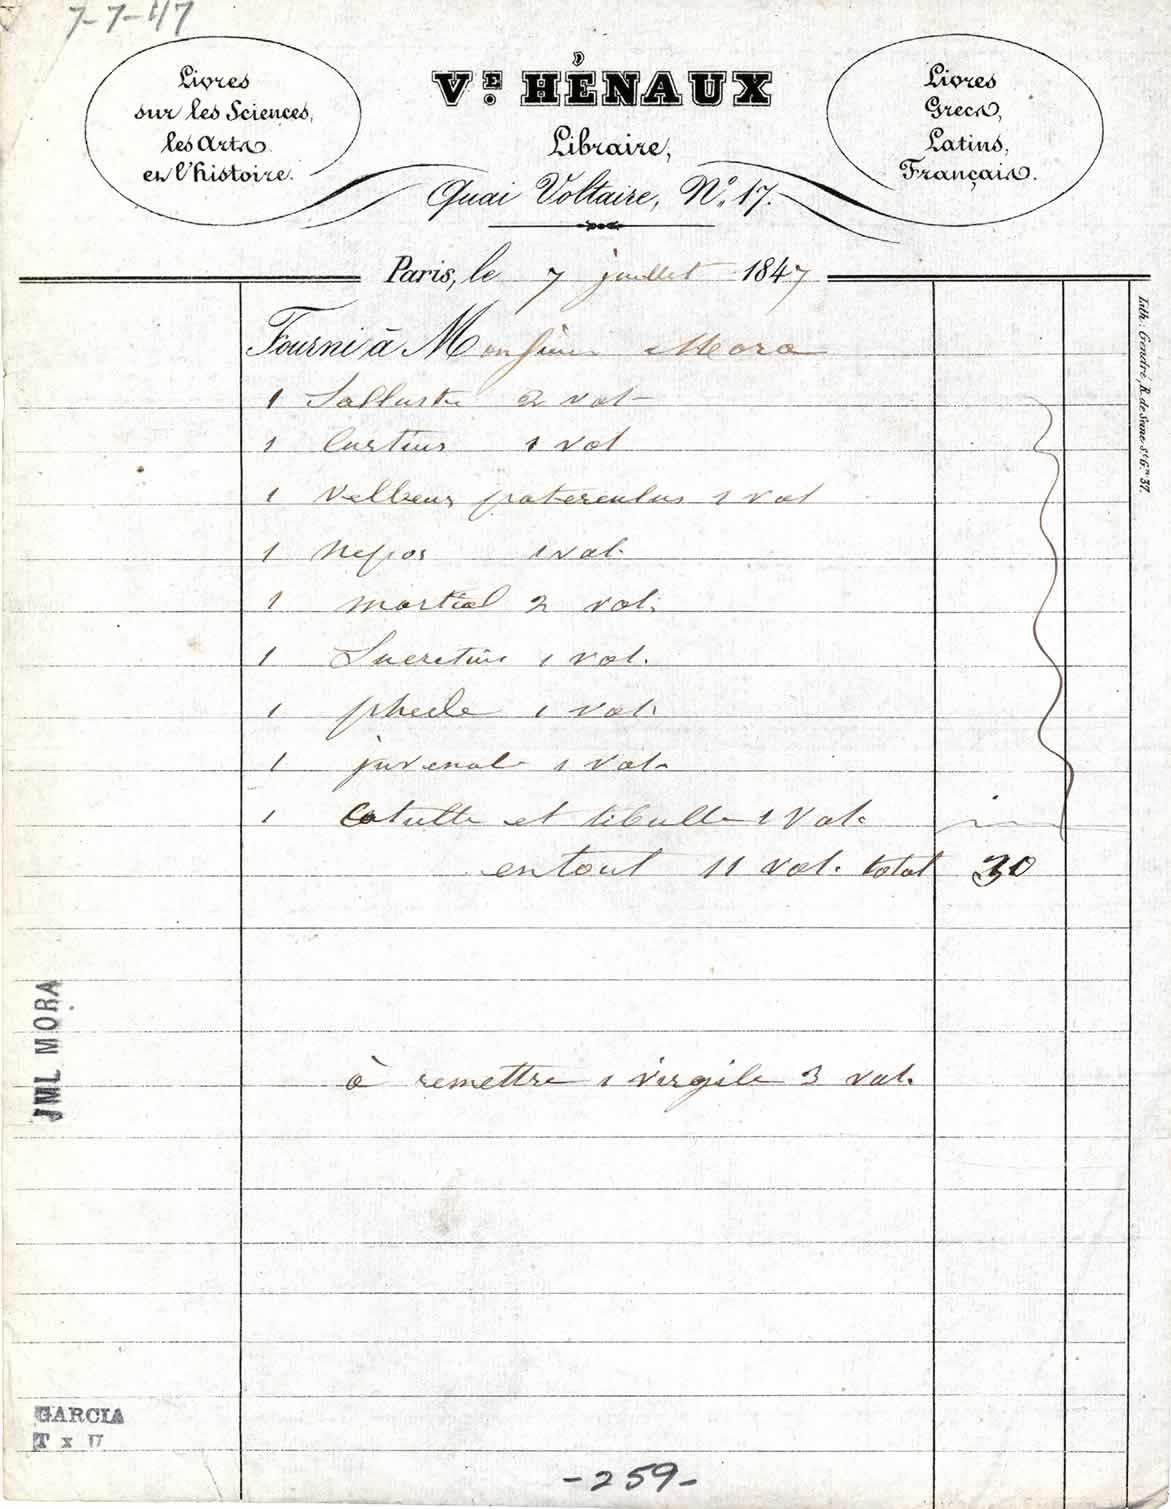 7-7-47
Livres
sur les Sciences,
les Arts
et l'histoire.
VE. HÉNAUX
Libraire,
Quai Voltaire, No. 17.
Livres
Grecs,
Latins,
Français.
Paris, le 7 juillet 1847
Fourni à Monsieur Mora
1 Salluste 2 vol
1 Curtius 1 vol
1 Velleius paterculus 1 vol
1 Nepos 1 vol.
1 martial 2 vol.
1 Lucretius 1 vol.
1 phede 1 vol.
1 juvenal 1 vol.
1 Catulle et tibulle 1 Vol.
en tout 11 vol. total 30
à remettre 1 virgile 3 vol.
Lith: Gendré, R. de Seine St. Gn. 37.
JML MORA
GARCIA
T x U
-259-